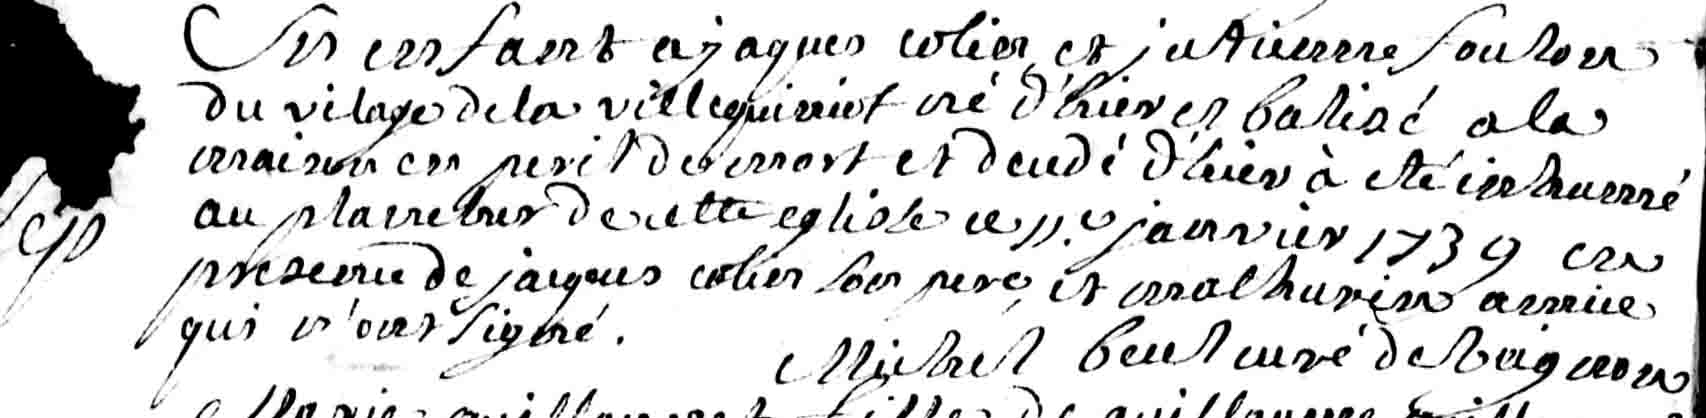 Un enfant a jaques colier et jullienne foulon
du vilage de la villeguiniot né d'hier et batisé a la
maison en peril de mort et decedé d'hier à eté inhumé
au placitre de cette eglise ce 11.e janvier 1739 en
presence de jacques colier son pere, et mathurin amice
qui n'ont signé.
Michel curé de Baignon